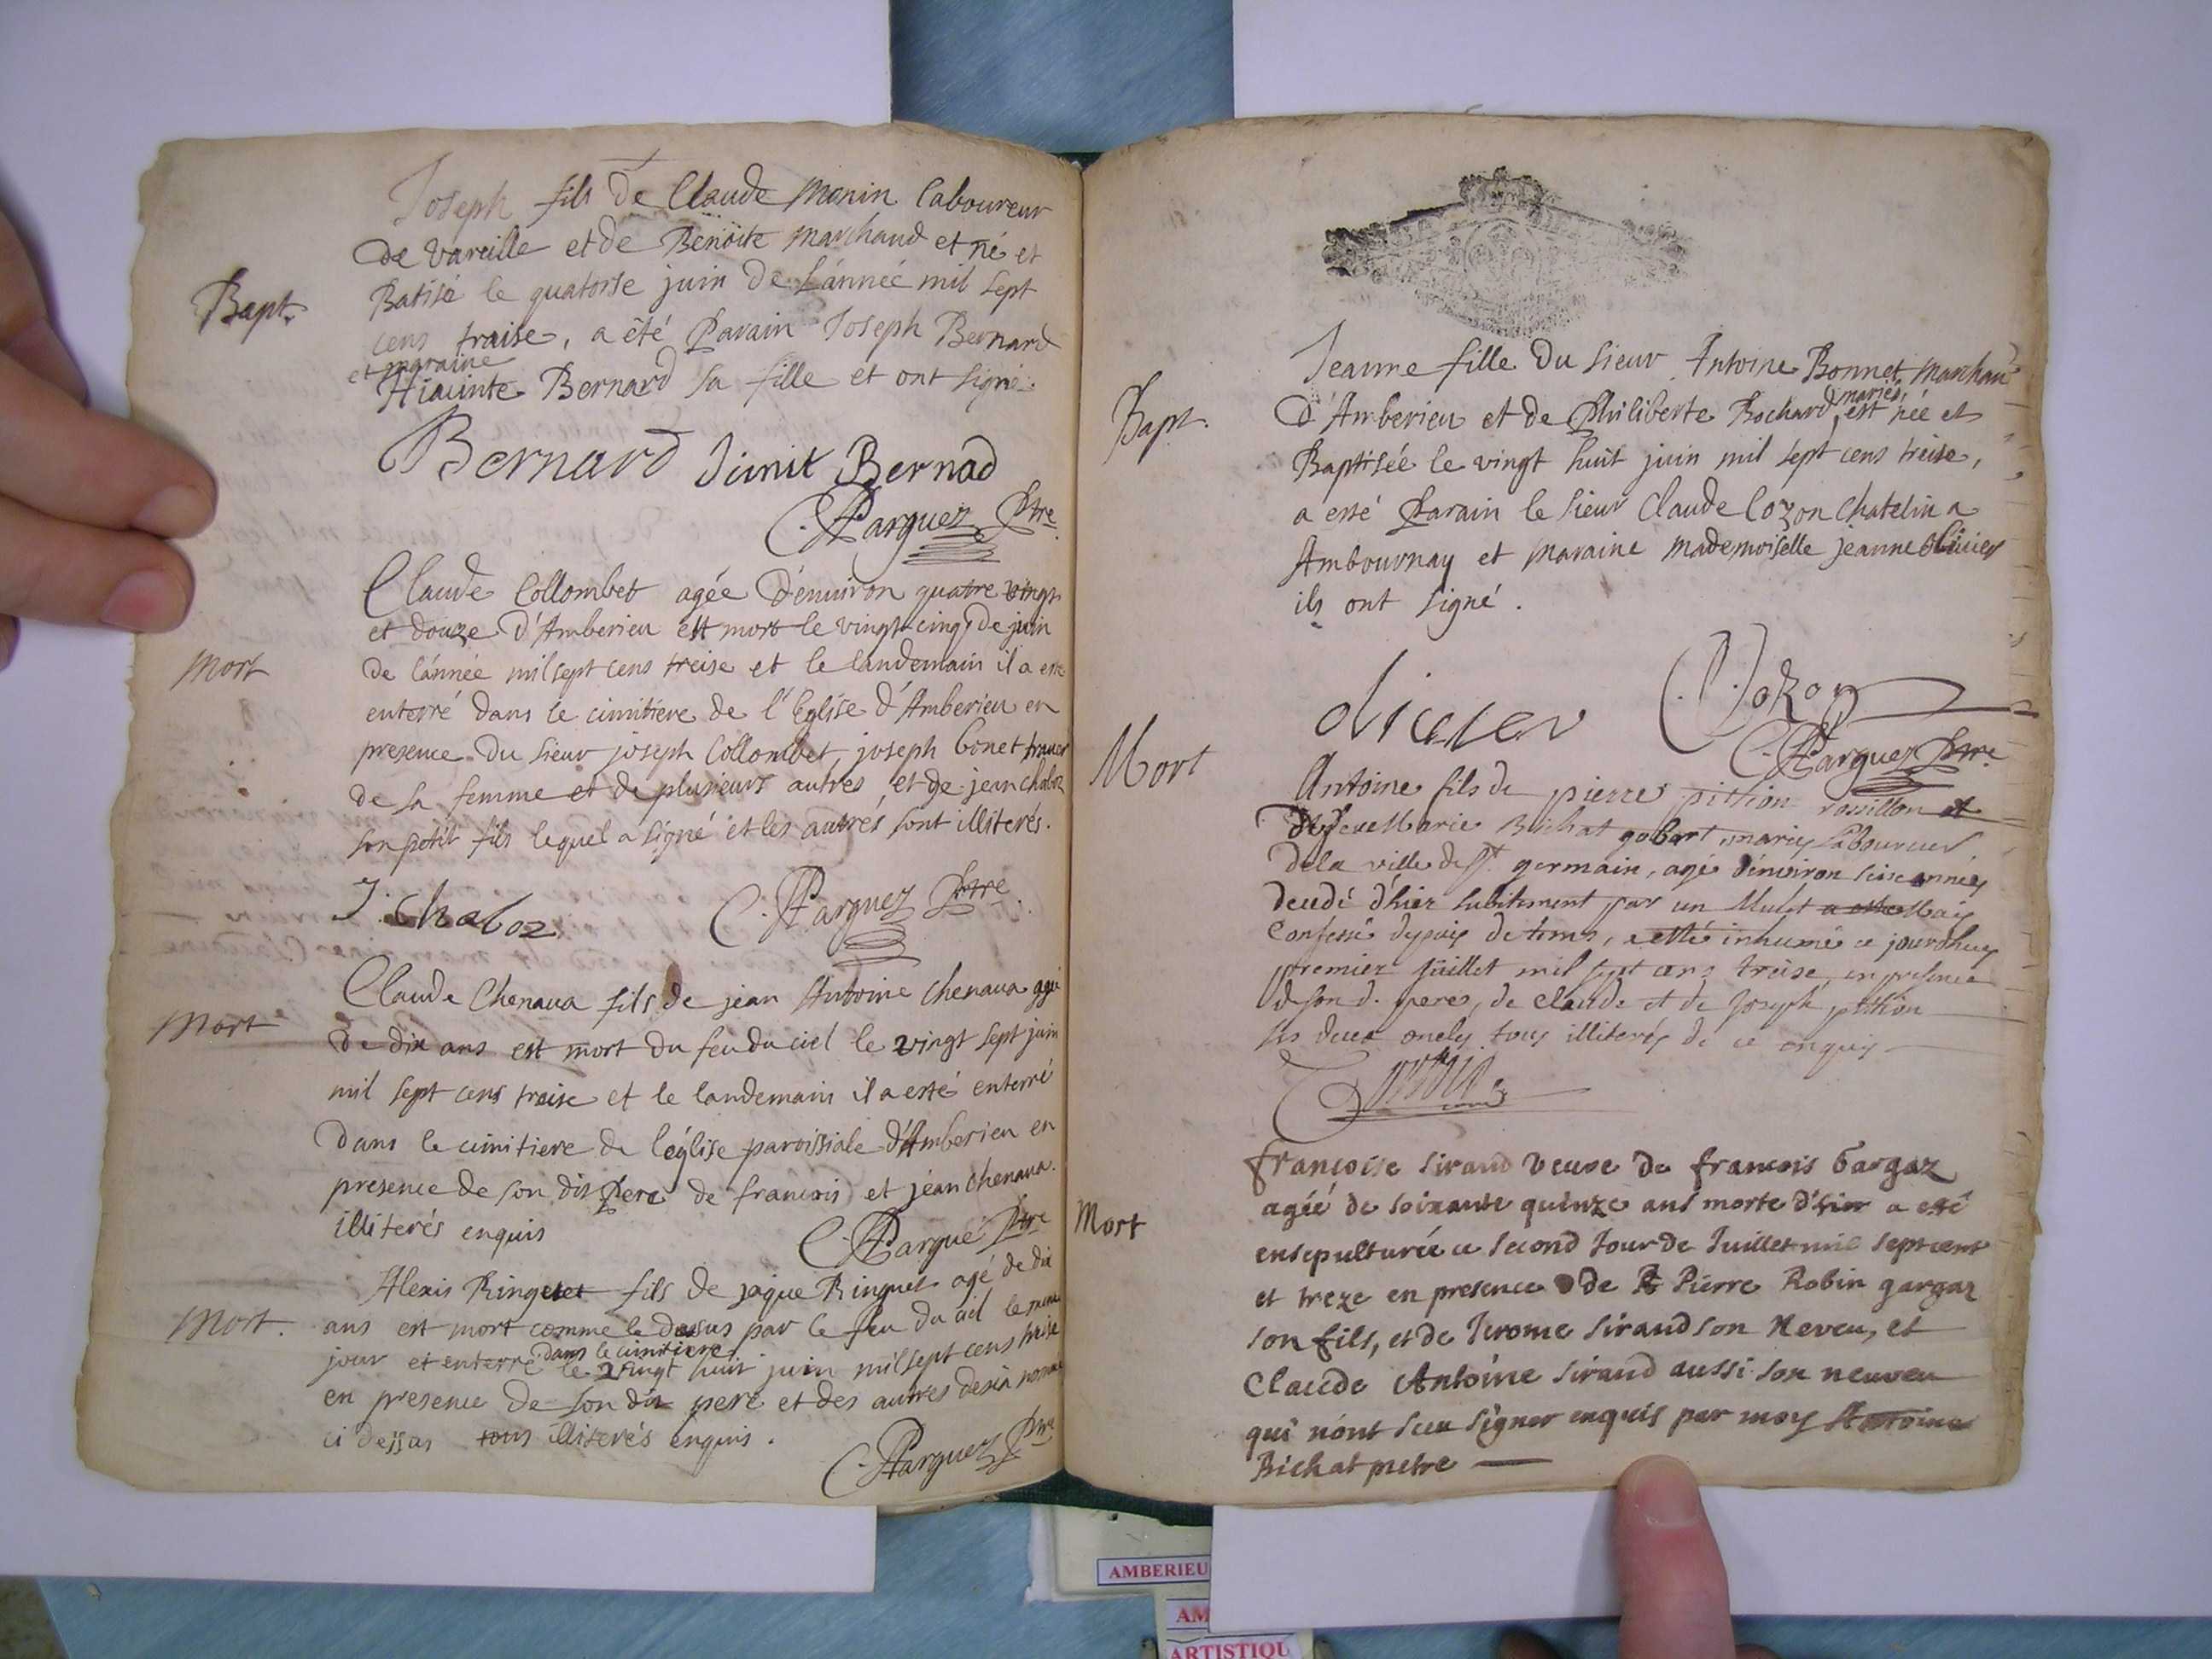 Joseph fils de Claude Monin laboureur
de vareille et de Benoite marchand et né et
Batisé le quatorse juin de l'année mil sept
Bapt.
cens traise, a été Parain Joseph Bernard
et maraine
Hiacinte Bernard sa fille et ont signé.
Bernard Simit Bernad
C. Parguez Ptre
Claude Collombet agée d'environ quatre vingt
et douze d'Amberieu est mort le vingt cinq de juin
Mort
de l'année mil sept cens treise et le landemain il a esté
enterré dans le cimitiere de l'Eglise d'Amberieu en
presence du sieur joseph Collombet, joseph bonet
de sa femme et de plusieurs autres, et de jean chaboz
son petit fils lequel a signé et les autres sont illiterés.
J. Chaboz C. Parguez Ptre.
Claude Chenaua fils de jean Antoine chenaua agé
Mort
de dix ans est mort du feu du ciel le vingt sept juin
mil sept cens treise et le landemain il a esté enterré
dans le cimitiere de l'église paroissiale d'Amberieu en
presence de son dit Pere de francois et jean chenaua.
illiterés enquis C. Pargué Ptre
Alexis Ringet fils de jaque Ringuet agé de dix
Mort.
ans est mort comme le dessus par le feu du ciel le meme
dans le cimitiere
jour et enterré le vingt huit juin mil sept cens traise
en presence de son dit pere et des autres desia nommé
ci dessus tous illiterés enquis.
C. Parguez Ptre
Jeanne fille du sieur Antoine Bonnet marchan
mariés,
Bapt.
d'Amberieu et de Philiberte Rochard est née et
Baptisée le vingt huit juin mil sept cens treise,
a esté Parain le sieur Claude Cozon chatelin a
Ambournay et maraine mademoiselle jeanne olivier
ils ont signé.
olivier C. Cozon
C. Parguez Ptre
Mort
Antoine fils de pierre pithion rossillon et
Marie Bichat gobart mariés laboureur
de la ville de St germain, agé d'environ seise années
decedé d'hier subitement par un Mulet a esté Mais
Confessé depuis detems, a esté inhumé ce jourdhuy
premier Juillet mil sept cens treise, en presence
de son d. pere, de Claude et de Joseph pithion
ses deux oncles tous illiterés de ce enquis
francoise sirand veuve de francois Gargaz
agéé de soixante quinze ans morte d'hier a esté
Mort
ensepulturéé ce second Jour de Juillet mil sept cent
et treze en presence de Pierre Robin gargaz
son fils, et de Jerome sirand son Neveu, et
Claude Antoine sirand aussi son neuveu
qui nónt sceu signer enquis par moy Antoine
Bichat pretre
AMBERIEU
AM
ARTISTIQU